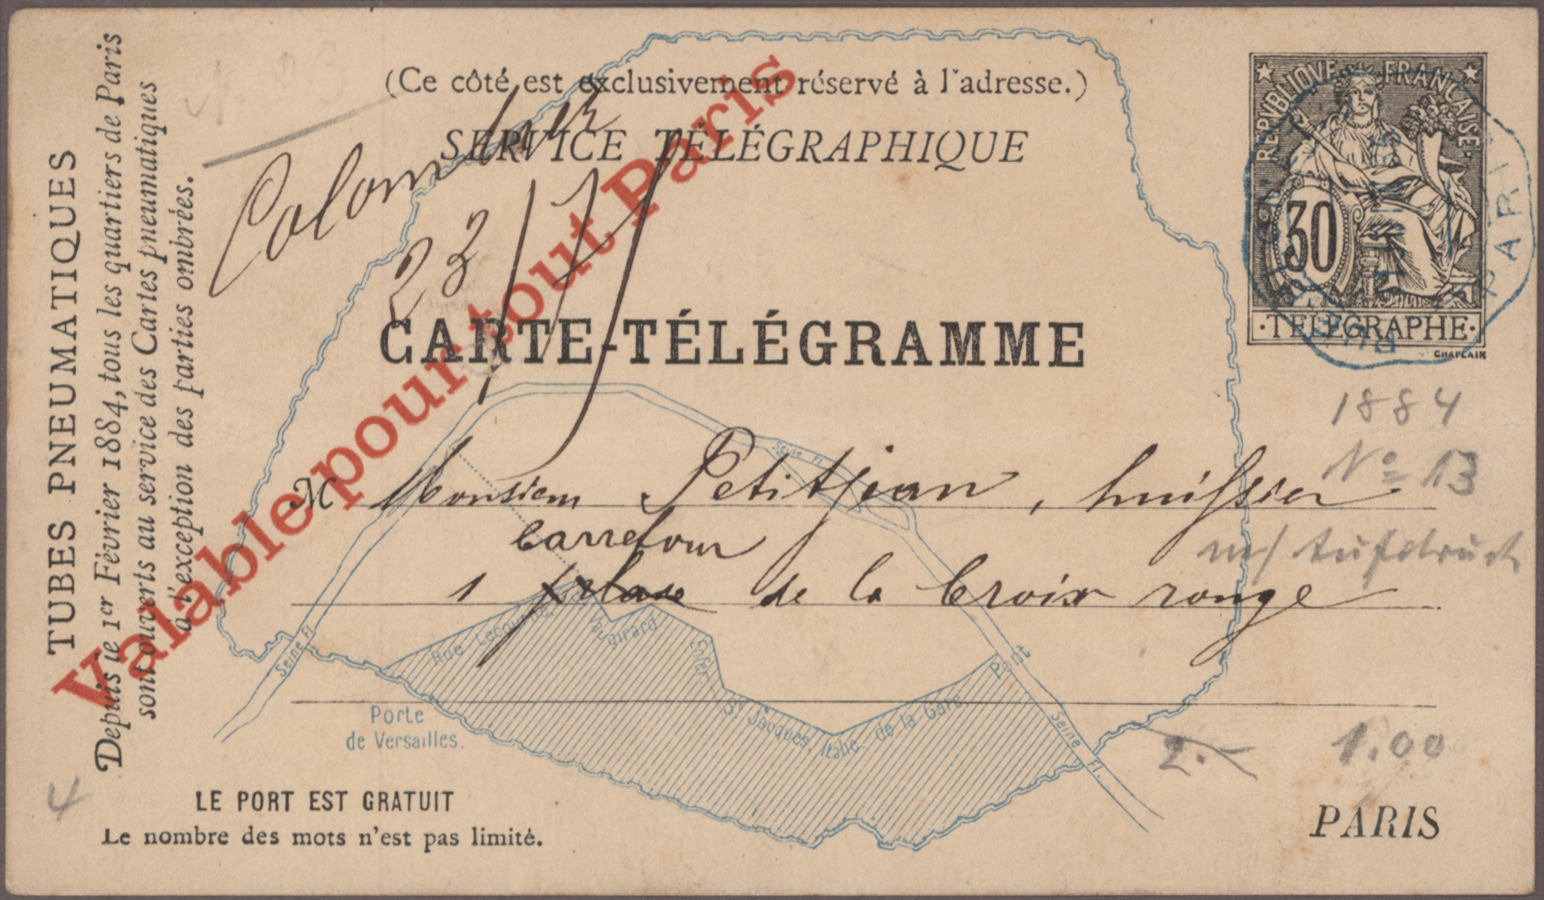 (Ce côté est exclusivement réservé à l'adresse.)
SERVICE TÉLÉGRAPHIQUE
CARTE-TÉLÉGRAMME
RÉPUBLIQUE FRANÇAISE
30
TÉLÉGRAPHE
CHAPLAIN
PARIS
TUBES PNEUMATIQUES
Depuis le 1er Février 1884, tous les quartiers de Paris
sont ouverts au service des Cartes pneumatiques
à l'exception des parties ombrées.
Valable pour tout Paris
Colombier
23
1884
No 13
m/ Aufdruck
M Monsieur Petitjean, huissier
carrefour
1 place de la Croix rouge
Seine Fl.
Seine Fl.
Rue Lecourbe
Vaugirard
Enfer
St Jacques
Italie
de la Gare
Pont
Seine Fl.
Porte
de Versailles.
2.-
1.00
4
LE PORT EST GRATUIT
Le nombre des mots n'est pas limité.
PARIS